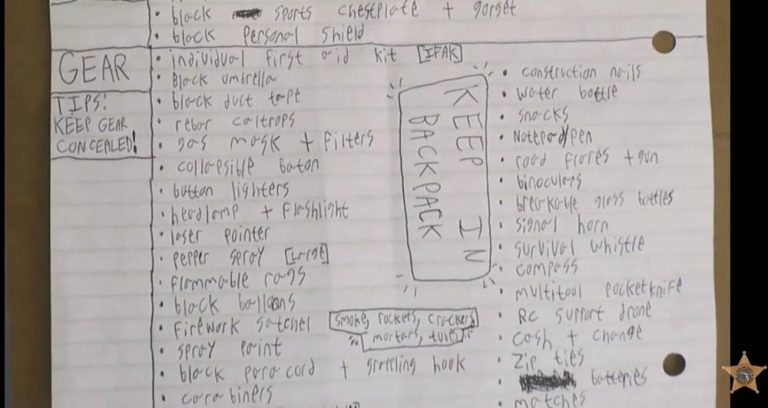 • black sports chestplate + gorget
• black personal shield
GEAR
TIPS:
KEEP GEAR
CONCEALED!
• individual first aid kit [IFAK]
• Black umbrella
• black duct tape
• rebar caltrops
• gas mask + filters
• collapsible baton
• button lighters
• headlamp + flashlight
• laser pointer
• pepper spray [Large]
• flammable rags
• black balloons
• firework satchel [smoke, rockets, crackers, mortars, tubes]
• spray paint
• black paracord + grappling hook
• carabiners
KEEP IN
BACKPACK
• construction nails
• water bottle
• snacks
• Notepad/pen
• road flares + gun
• binoculars
• breakable glass bottles
• signal horn
• survival whistle
• compass
• multitool pocketknife
• RC support drone
• cash + change
• Zip ties
• batteries
• matches